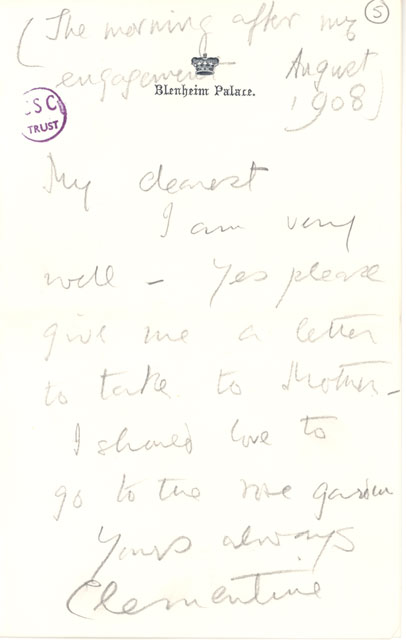 (The morning after my
engagement August
1908)
5
Blenheim Palace.
CSC
TRUST
My dearest
I am very
well - Yes please
give me a letter
to take to Mother -
I should love to
go to the rose garden
Yours always
Clementine